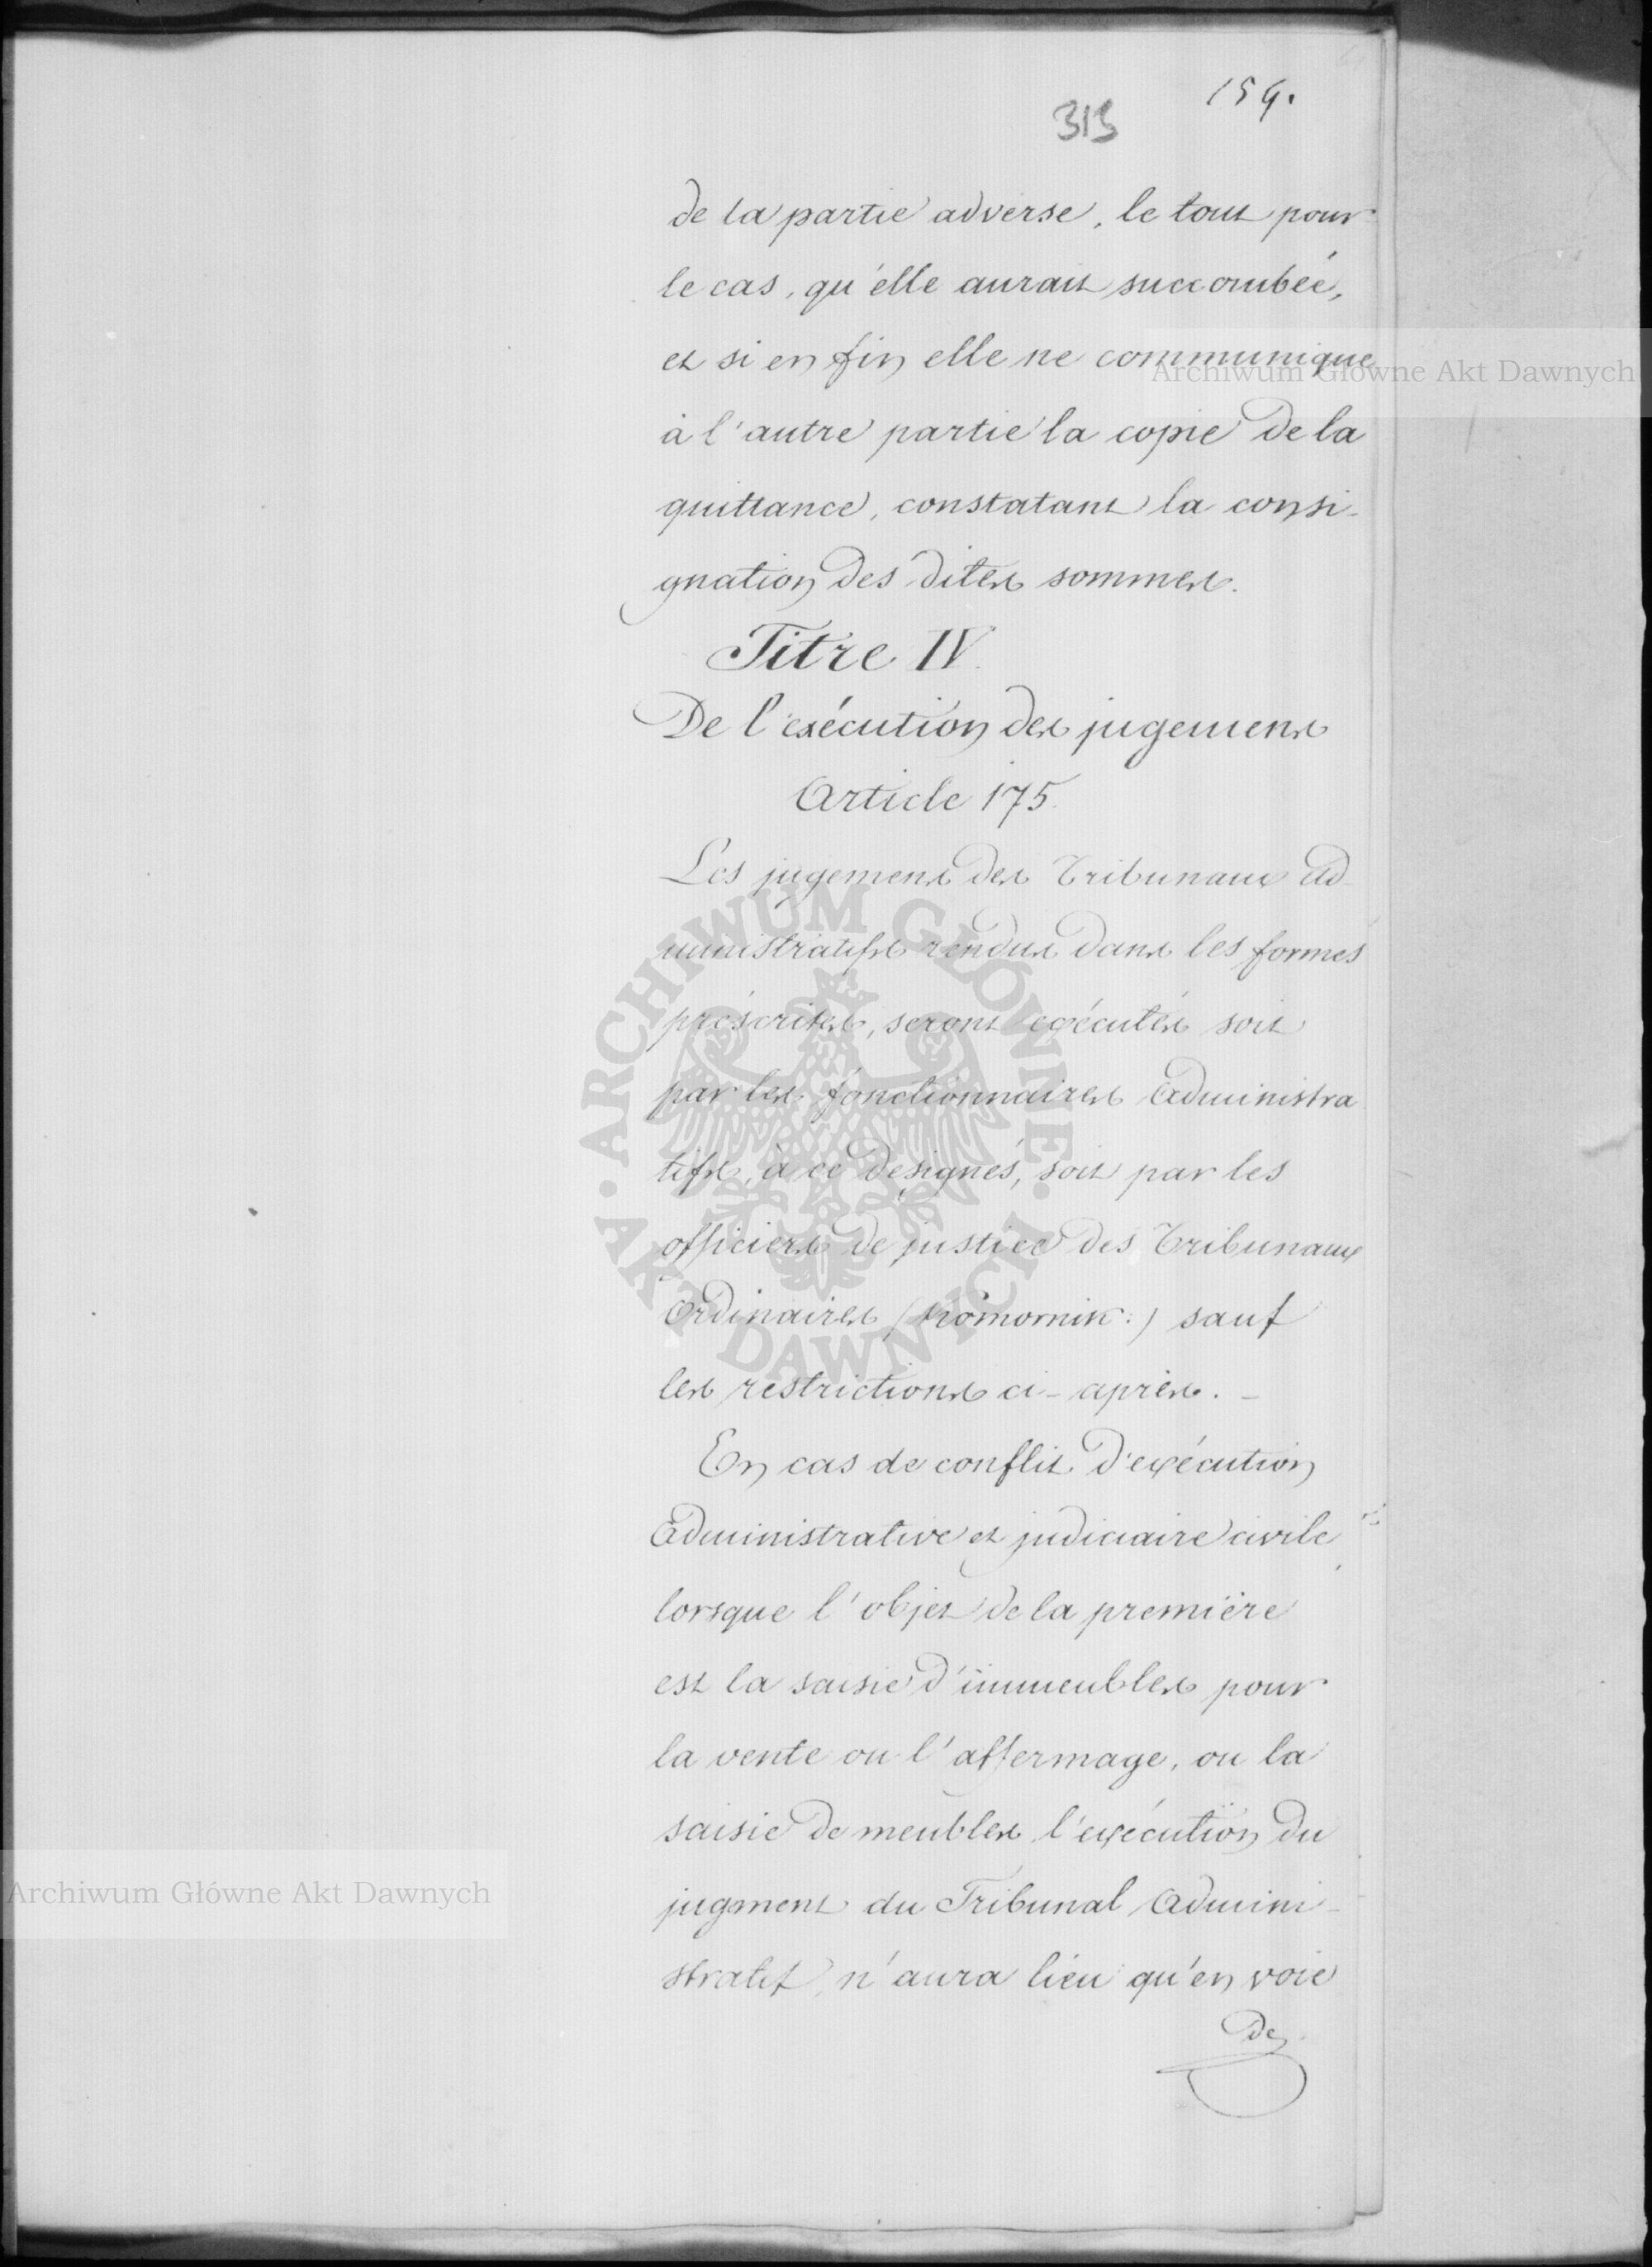 159.
313
de la partie adverse, le tout pour
le cas, qu'elle aurait succombée,
et si en fin elle ne communique
à l'autre partie la copie de la
quittance, constatant la consi-
gnation des dites sommes.
Titre IV.
De l'exécution des jugemens
Article 175.
Les jugemens des Tribunaux Ad-
ministratifs rendus dans les formes
préscrites, seront exécutés soit
par les fonctionnaires Administra
tifs, à ce designés, soit par les
officiers de justice des Tribunaux
Ordinaires (Komornik:) sauf
les restrictions ci-après. -
En cas de conflit d'exécution
Administrative et judiciaire civile
lorsque l'objet de la première
est la saisie d'immeubles pour
la vente ou l'affermage, ou la
saisie de meubles l'exécution du
jugment du Tribunal Admini-
stratif, n'aura lieu qu'en voie
de
Archiwum Główne Akt Dawnych
ARCHIWUM GŁÓWNE
AKT DAWNYCH
Archiwum Główne Akt Dawnych